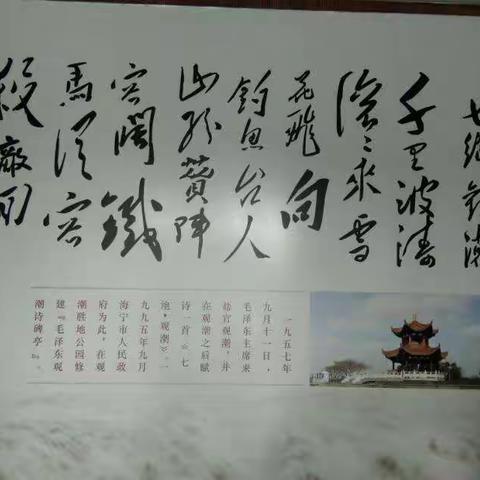 七绝觀潮
千里波涛
滚滚来雪
花飛向
釣魚台人
山纷贊陣
容闊鐵
馬從容
殺敵回
一九五七年
九月十一日，
毛泽东主席来
盐官观潮，并
在观潮之后赋
诗一首《七
绝·观潮》。一
九九五年九月
海宁市人民政
府为此，在观
潮胜地公园修
建『毛泽东观
潮诗碑亭』。